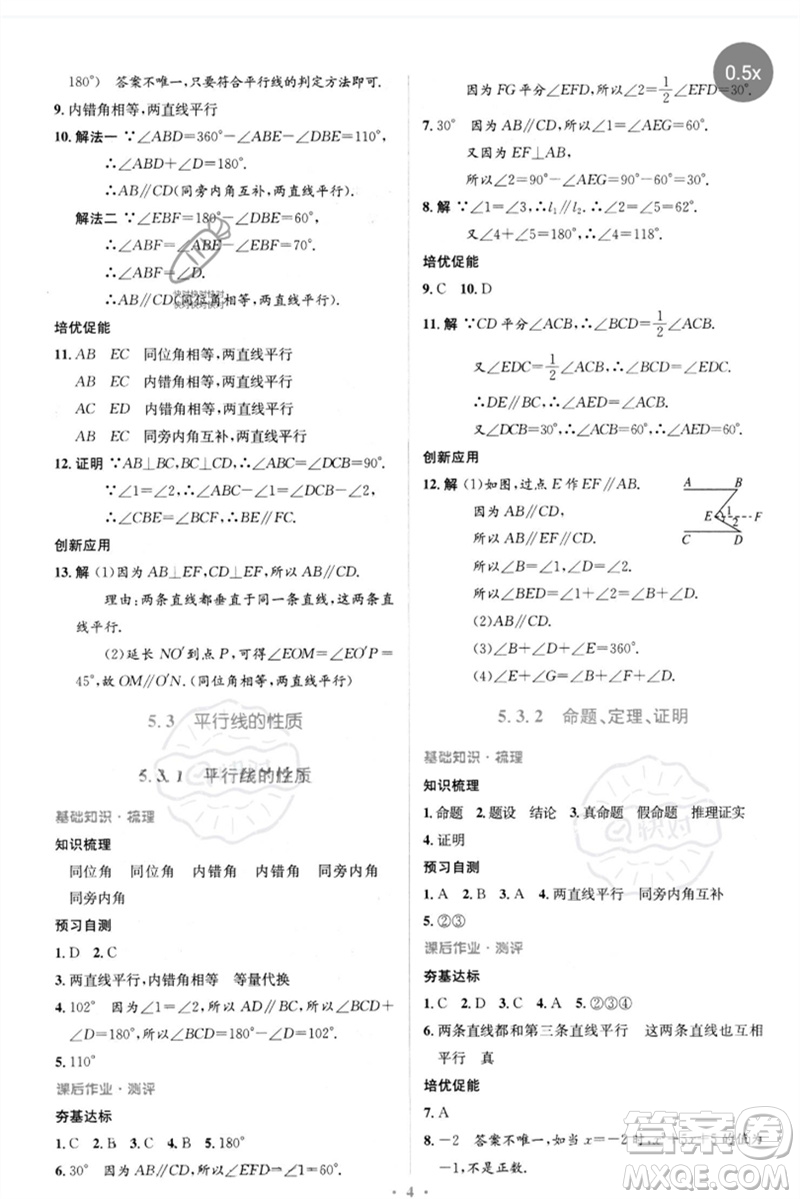 180°) 答案不唯一,只要符合平行线的判定方法即可.
9. 内错角相等,两直线平行
10. 解法一 ∵∠ABD=360°-∠ABE-∠DBE=110°,
∴∠ABD+∠D=180°.
∴AB∥CD(同旁内角互补,两直线平行).
解法二 ∵∠EBF=180°-∠DBE=60°,
∴∠ABF=∠ABE-∠EBF=70°.
∴∠ABF=∠D.
∴AB∥CD(同位角相等,两直线平行).
培优促能
11. AB EC 同位角相等,两直线平行
AB EC 内错角相等,两直线平行
AC ED 内错角相等,两直线平行
AB EC 同旁内角互补,两直线平行
12. 证明 ∵AB⊥BC,BC⊥CD,∴∠ABC=∠DCB=90°.
∵∠1=∠2,∴∠ABC-∠1=∠DCB-∠2.
∴∠CBE=∠BCF.∴BE∥FC.
创新应用
13. 解 (1)因为AB⊥EF,CD⊥EF,所以AB∥CD.
理由:两条直线都垂直于同一条直线,这两条直线平行.
(2)延长NO′到点P,可得∠EOM=∠EO′P=
45°,故OM∥O′N.(同位角相等,两直线平行)
5.3 平行线的性质
5.3.1 平行线的性质
基础知识·梳理
知识梳理
同位角 同位角 内错角 内错角 同旁内角
同旁内角
预习自测
1. D 2. C
3. 两直线平行,内错角相等 等量代换
4. 102° 因为∠1=∠2,所以AD∥BC,所以∠BCD+
∠D=180°,所以∠BCD=180°-∠D=102°.
5. 110°
课后作业·测评
夯基达标
1. C 2. C 3. B 4. B 5. 180°
6. 30° 因为AB∥CD,所以∠EFD=∠1=60°.
因为FG平分∠EFD,所以∠2=1/2∠EFD=30°.
7. 30° 因为AB∥CD,所以∠1=∠AEG=60°.
又因为EF⊥AB,
所以∠2=90°-∠AEG=90°-60°=30°.
8. 解 ∵∠1=∠3,∴l₁∥l₂.∴∠2=∠5=62°.
又∵∠4+∠5=180°,∴∠4=118°.
培优促能
9. C 10. D
11. 解 ∵CD平分∠ACB,∴∠DCB=1/2∠ACB.
又∠EDC=1/2∠ACB,∴∠DCB=∠EDC.
∴DE∥BC.∴∠AED=∠ACB.
又∠DCB=30°,∴∠ACB=60°,∴∠AED=60°.
创新应用
12. 解 (1)如图,过点E作EF∥AB.
因为AB∥CD,
所以EF∥CD,
所以∠B=∠1,∠D=∠2,
所以∠BED=∠1+∠2=∠B+∠D.
(2)AB∥CD.
(3)∠B+∠D+∠E=360°.
(4)∠B+∠F+∠D=∠E+∠G.
A B
E 1 2 F
C D
5.3.2 命题、定理、证明
基础知识·梳理
知识梳理
1. 命题 2. 题设 结论 3. 真命题 假命题 推理证实
4. 证明
预习自测
1. A 2. B 3. A 4. 两直线平行 同旁内角互补
5. ②③
课后作业·测评
夯基达标
1. C 2. C 3. D 4. A 5. ②③④
6. 两条直线都和第三条直线平行 这两条直线也互相
平行 真
培优促能
7. A
8. -2 答案不唯一,如当x=-2时,x²+5x+5的值为
-1,不是正数.
4
0.5x
快对
答案圈
MXQE.COM